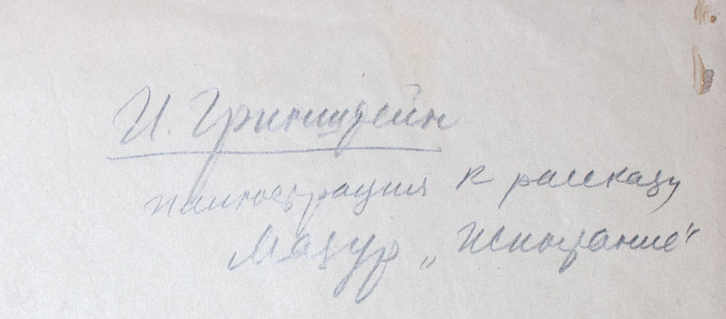 И. Гринштейн
иллюстрация к рассказу
Мазур „Испытание"